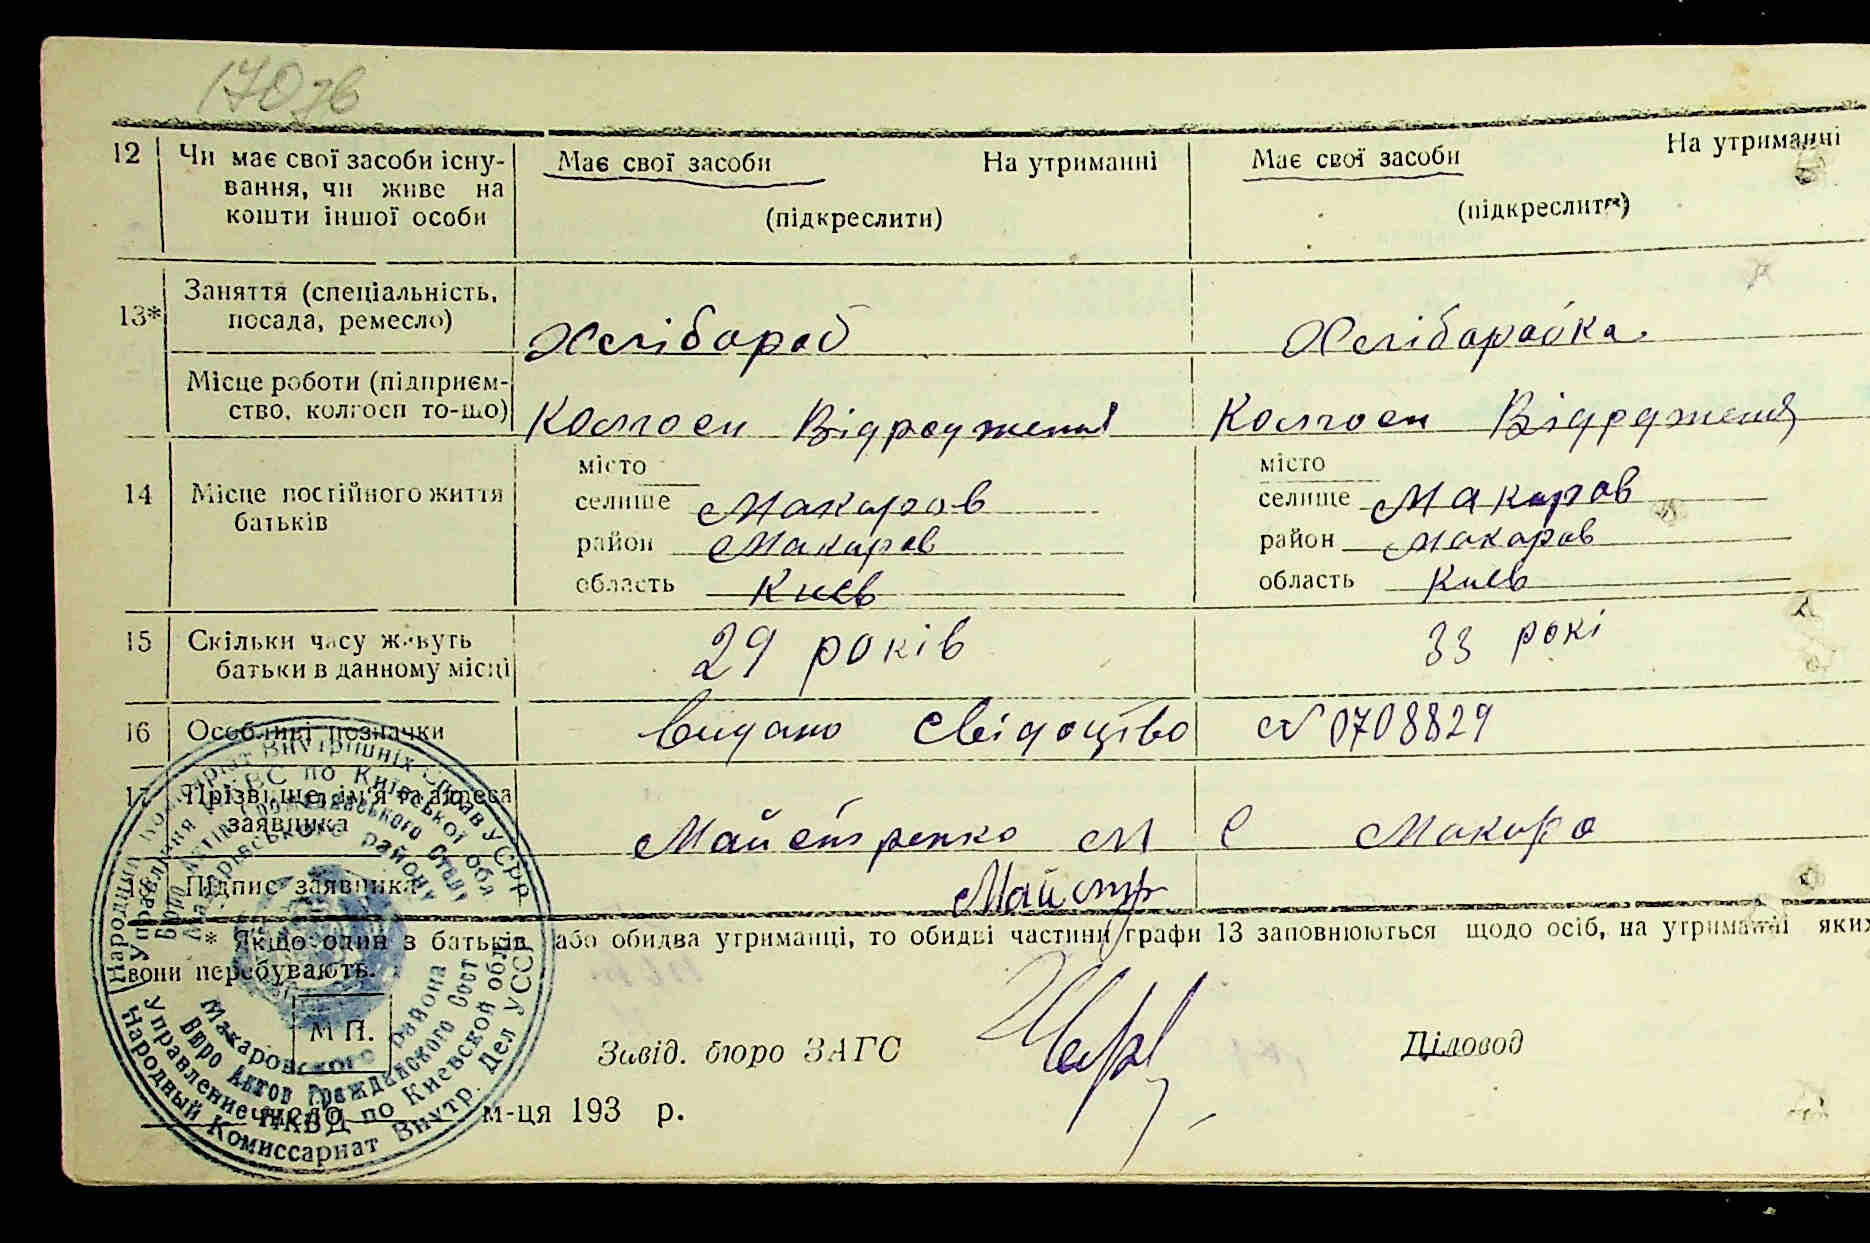 170 зв
12 Чи має свої засоби існу- Має свої засоби На утриманні Має свої засоби На утриманні
вання, чи живе на
кошти іншої особи (підкреслити) (підкреслити)
13* Заняття (спеціальність,
посада, ремесло) Хлібороб Хліборобка
Місце роботи (підприєм-
ство, колгосп то-що) Колгосп Відродження Колгосп Відрдження
14 Місце постійного життя
батьків
місто місто
селище Макаров селище Макаров
район Макаров район Макаров
область Киев область Киев
15 Скільки часу живуть
батьки в данному місці 29 років 33 рокі
16 Особливі позначки Видано Свідоцтво N 0708829
17 Прізвище, ім'я та адреса
заявника Майстренко М С Макаро
18 Підпис заявника Майстр
* Якщо один з батьків або обидва утриманці, то обидві частини графи 13 заповнюються щодо осіб, на утриманні яких
вони перебувають.
М П.
Завід. бюро ЗАГС Діловод
число м-ця 193 р.
Народний Комісаріат Внутрішніх Справ УСРР
Управління НКВС по Київській обл
Бюро Актів Громадянського Стану
Макарівського району
Макаровского района
Бюро Актов Гражданского Сост
Управление НКВД по Киевской обл
Народный Комиссариат Внутр. Дел УССР